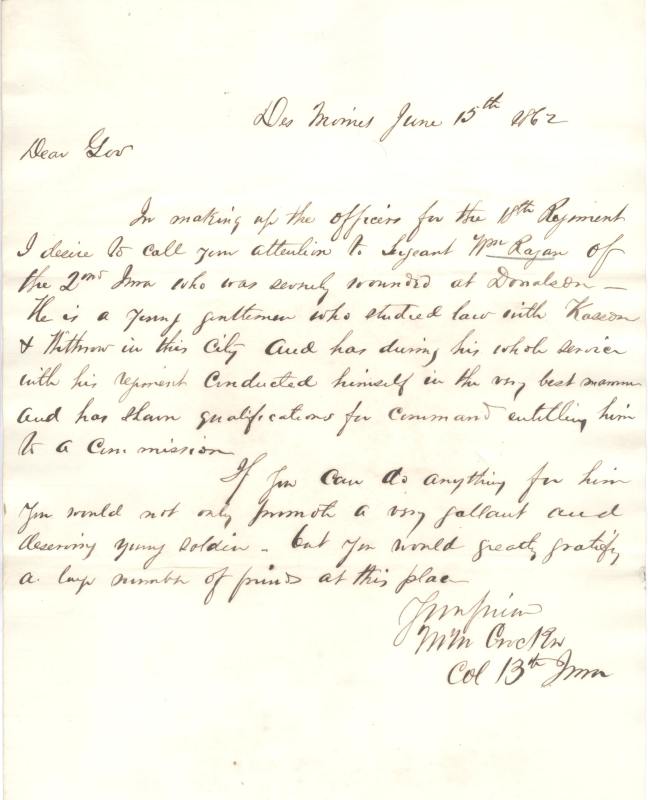 Des Moines June 15th 1862
Dear Gov
In making up the officers for the 18th Regiment
I desire to call your attention to Sergeant Wm Ragan of
the 2nd Iowa who was severely wounded at Donalson –
He is a young gentleman who studied law with Kasson
& Withrow in this City and has during his whole service
with his regiment conducted himself in the very best manner
and has shown qualifications for command entitling him
to a commission
If you can do anything for him
you would not only promote a very gallant and
deserving young soldier – but you would greatly gratify
a large number of friends at this place
Your friend
MM Crocker
Col 13th Iowa